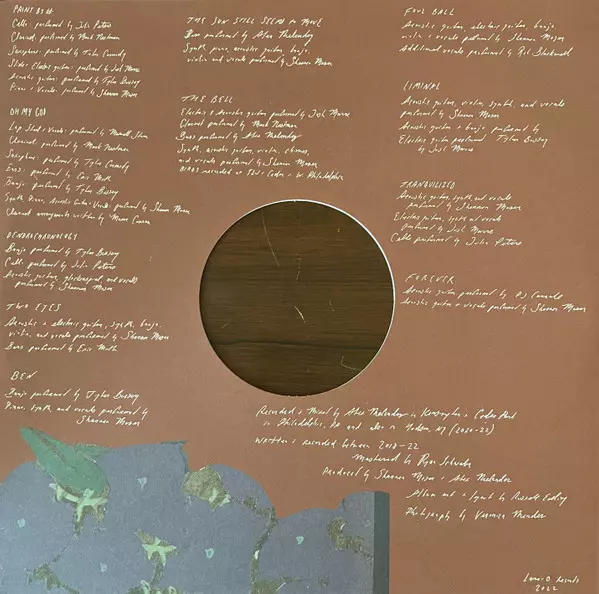 PAINT BY #
Cello: performed by Julia Peters
Clarinet: performed by Mark
Saxophone: performed by Tyler
Slide Electric guitar: performed by Josh
Acoustic guitar: performed by Tyler Bussey
Piano + Vocals: performed by Shannon Moser
OH MY GOD
Lap Steel + Vocals: performed by
Clarinet: performed by Mark
Saxophone: performed by Tyler
performed by Eric Muth
Banjo: performed by Tyler Bussey
Synth, Piano, Acoustic Guitar + Vocals: performed by Shannon Moser
Clarinet arrangements written by
DENDROCHRONOLOGY
Banjo performed by Tyler Bussey
Cello performed by Julia Peters
Acoustic guitar, glockenspiel, and vocals
performed by Shannon Moser
TWO EYES
Acoustic + electric guitar, synth, banjo,
violin, and vocals performed by Shannon Moser
Bass performed by Eric Muth
BEN
Banjo performed by Tyler Bussey
Piano, synth, and vocals performed by
Shannon Moser
THE SUN STILL SEEMS TO MOVE
Bass performed by Alex
Synth, piano, acoustic guitar, banjo,
violin and vocals performed by Shannon Moser
THE BELL
Electric + Acoustic guitar performed by Josh
Clarinet performed by Mark
Bass performed by Alex
Synth, acoustic guitar, violin, chimes,
and vocals performed by Shannon Moser
BIRDS recorded at + Cedar in W. Philadelphia
FOUL BALL
Acoustic guitar, electric guitar, banjo,
violin + vocals performed by Shannon Moser
Additional vocals performed by Ric
LIMINAL
Acoustic guitar, violin, synth, and vocals
performed by Shannon Moser
Acoustic guitar + banjo performed by
Electric guitar performed Tyler Bussey
by Josh
TRANQUILIZED
Acoustic guitar, synth, and vocals
performed by Shannon Moser
Electric guitar, synth and vocals
performed by Josh
Cello performed by Julia Peters
FOREVER
Acoustic guitar performed by
Acoustic guitar + vocals performed by Shannon Moser
Recorded + Mixed by Alex in Kensington + Cedar Park
in Philadelphia, PA and NJ
Written + recorded between 2018-22
Mastered by Ryan Schwabe
Produced by Shannon Moser + Alex
Album art + layout by Russell Edling
Photography by
Lame-O Records
2022